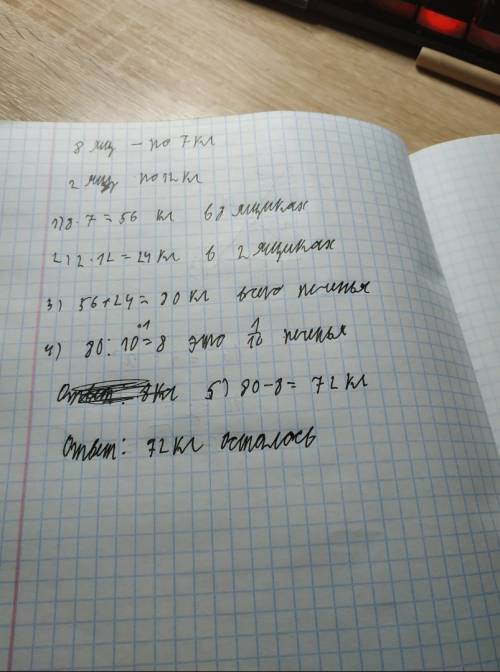 8 ящ - по 7 кг
2 ящ по 12 кг
1) 8 · 7 = 56 кг в 8 ящиках
2) 2 · 12 = 24 кг в 2 ящиках
3) 56 + 24 = 80 кг всего печенья
4) 80 : 10 · 1 = 8 это 1/10 печенья
8 кг 5) 80 - 8 = 72 кг
Ответ: 72 кг осталось